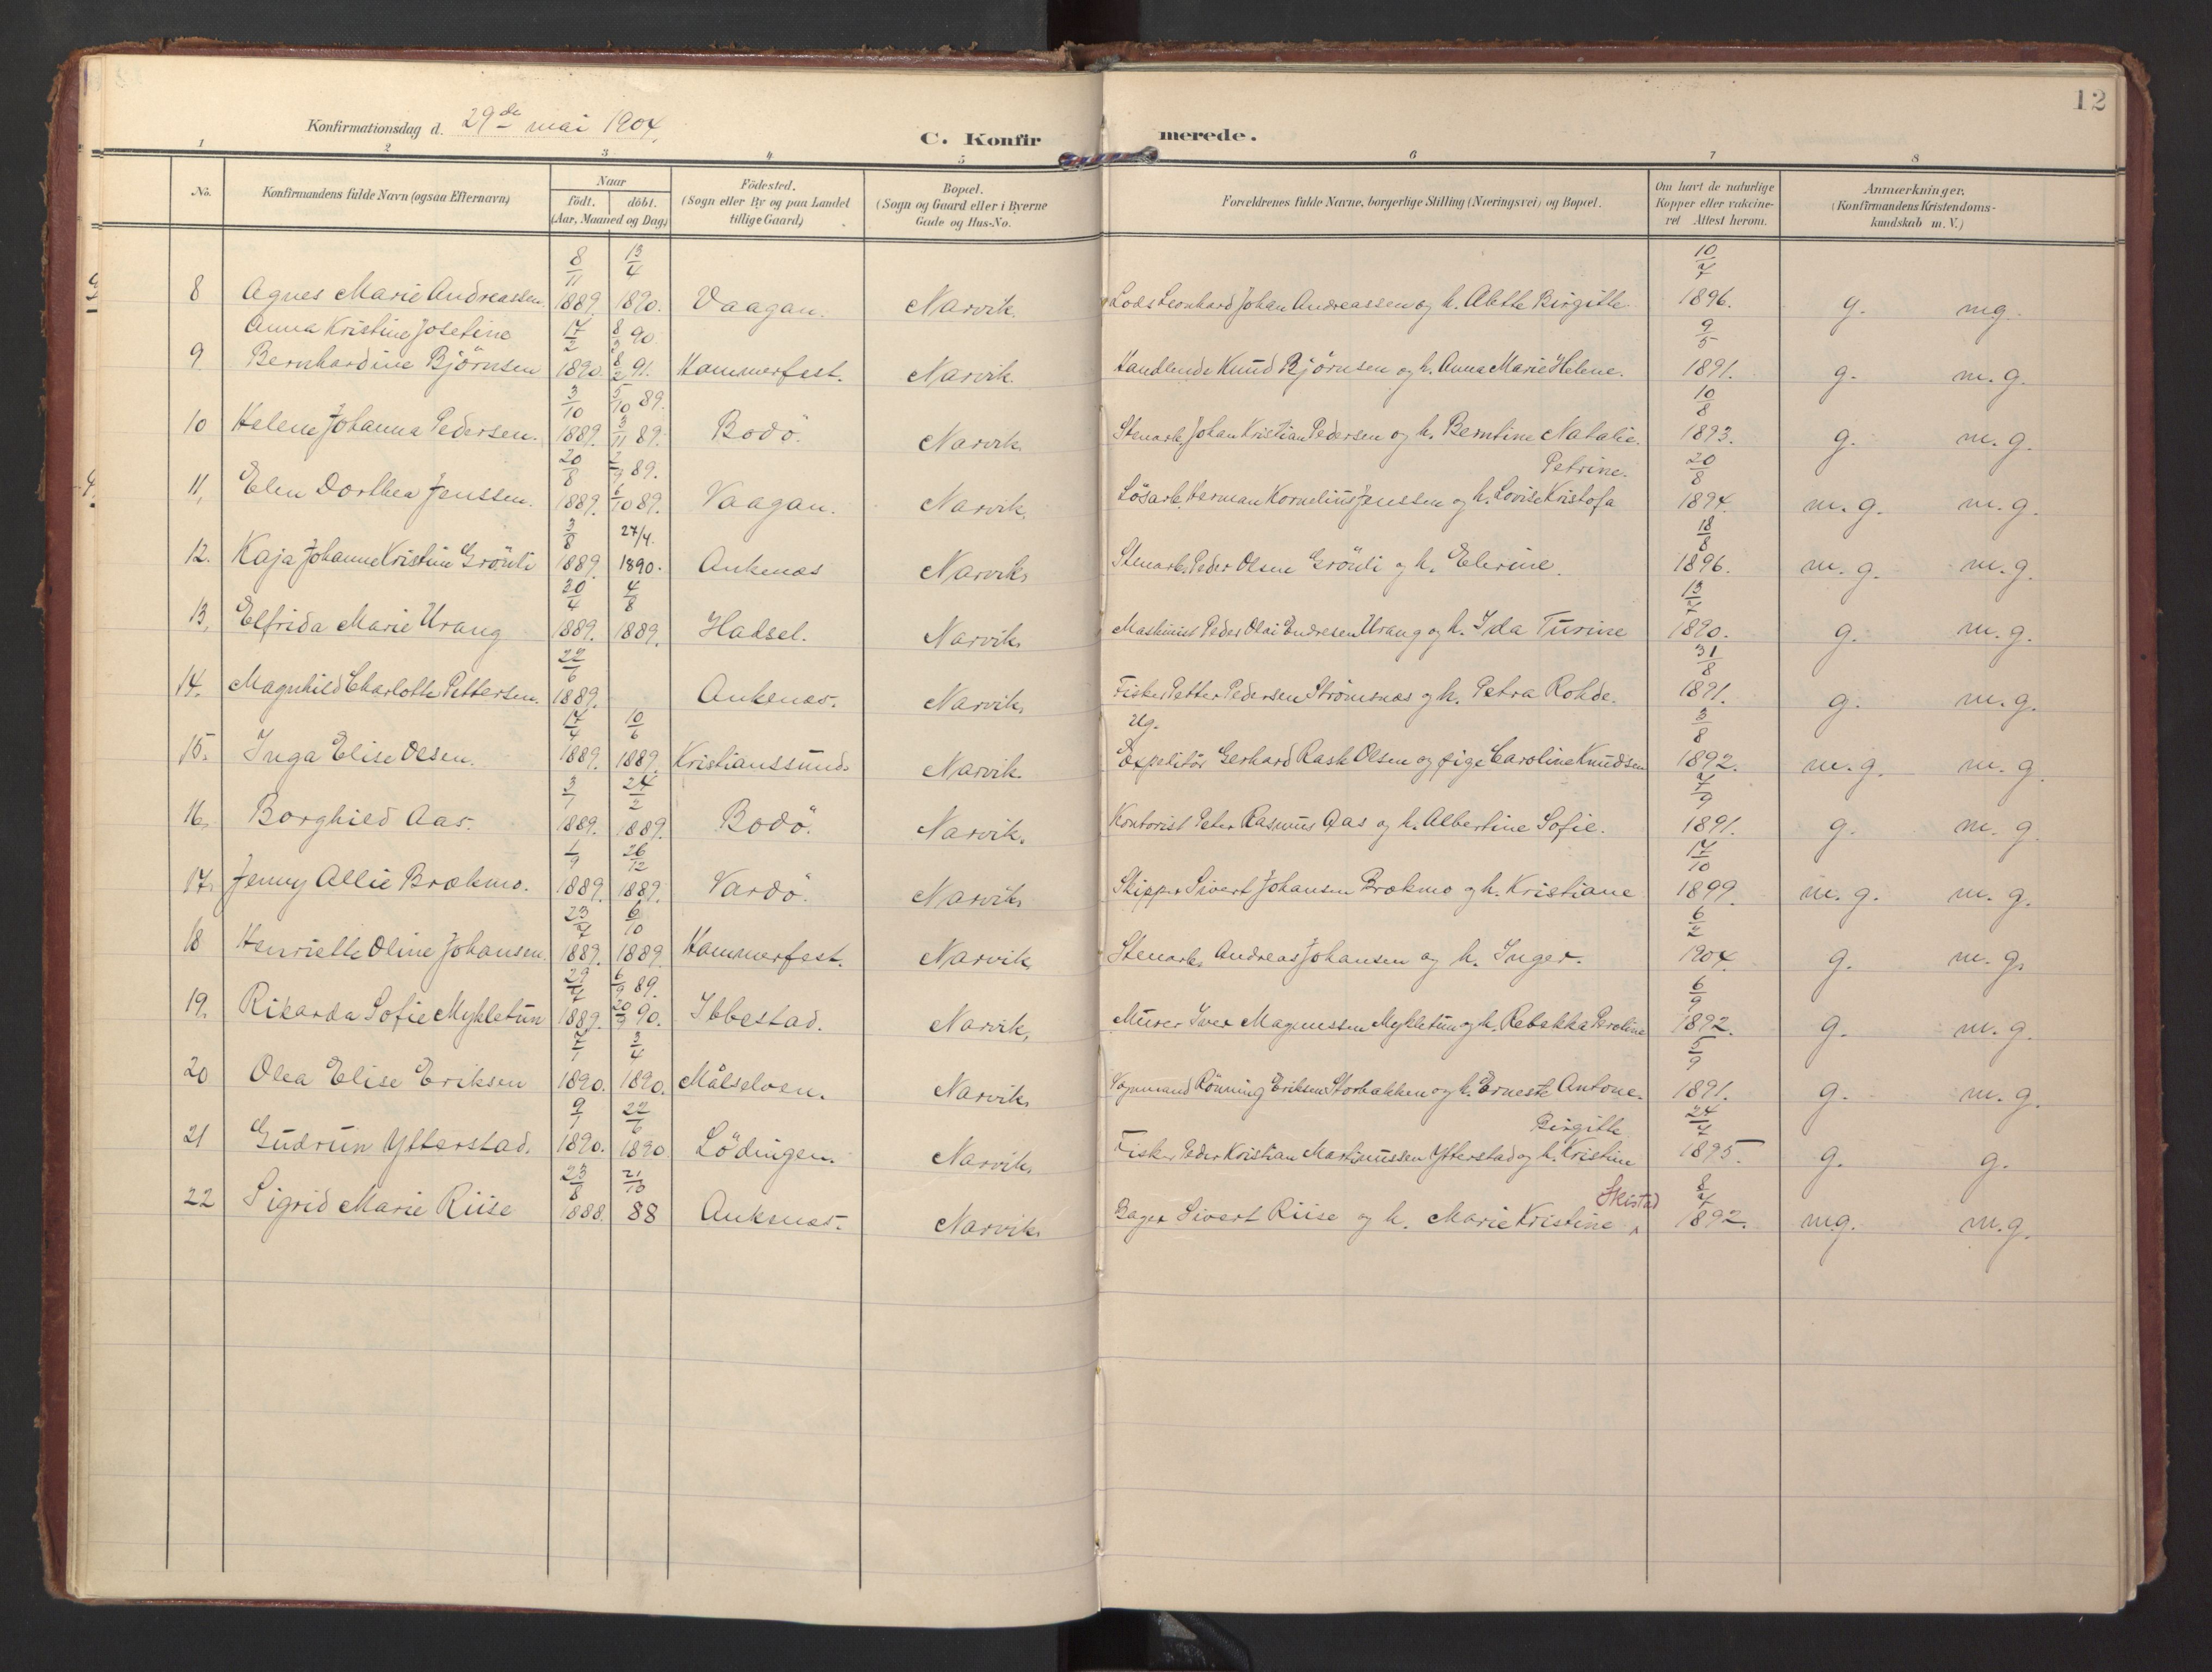 12
Konfirmationsdag d. 29de mai 1904.
C. Konfirmerede.
1 2 3 4 5 6 7 8
No. Konfirmandens fulde Navn (ogsaa Efternavn) Naar födt. döbt. (Aar, Maaned og Dag) Födested. (Sogn eller By og paa Landet tillige Gaard) Bopæl. (Sogn og Gaard eller i Byerne Gade og Hus-No. Forældrenes fulde Navne, borgerlige Stilling (Næringsvei) og Bopæl. Om havt de naturlige Kopper eller vakcineret Attest herom. Anmærkninger. (Konfirmandens Kristendomskundskab m. V.)
8 Agnes Marie Andreassen. 8/11 1889. 13/4 1890. Vaagan. Narvik. Lods Leonhard Johan Andreassen og h. Abelle Birgitte 10/7 1896. g. mg.
9. Anna Kristine Josefine Bernhardine Björnsen 17/2 1890. 8/3 90. 8/2 91. Hammerfest. Narvik. Handlende Knud Björnsen og h. Anna Marie Helene. 9/5 1891. g. m. g.
10 Helene Johanna Pedersen. 3/10 1889. 5/10 89. 3/11 89. Bodö. Narvik Stenarb. Johan Kristian Pedersen og h. Berntine Natalie. 10/8 1893. g. m. g.
11. Elen Dorthea Jenssen. 20/8 1889. 2/9 89. 6/10 89. Vaagan. Narvik. Lösarb. Herman Kornelius Jenssen og h. Lovise Kristofa Petrine. 20/8 1894. m. g. m. g.
12. Kaja Johanne Kristine Grönli 3/8 1889. 27/4. 1890. Ankenæs Narvik Stenarb. Peder Olsen Grönli og h. Elerine. 18/8 1896. m. g. m. g.
13. Elfrida Marie Urang 30/4 1889. 4/8 1889. Hadsel. Narvik Maskinist Peder Olai Endresen Urang og h. Ida Turine 13/7 1890. g. m. g.
14. Magnhild Charlotte Pettersen. 22/6 1889. Ankenæs. Narvik Fisker Petter Pedersen Strömsnæs og h. Petra Rohde. 31/8 1891. g. m. g.
15. Inga Elise Olsen. 17/4 1889. 10/6 1889. Kristianssund. Narvik. Ug. Expeditör Gerhard Rask Olsen og pige Caroline Knudsen 3/8 1892. m. g. m. g.
16. Borghild Aas. 3/1 1889. 24/2 1889. Bodö. Narvik. Kontorist Peter Rasmus Aas og h. Albertine Sofie. 7/9 1891. g. m. g.
17. Jenny Allie Brækmo. 1/9 1889. 26/12 1889. Vardö. Narvik Skipper Sivert Johansen Brækmo og h. Kristiane 17/10 1899. m. g. m. g.
18 Henriette Oline Johansen. 23/7 1889. 6/10 1889. Hammerfest. Narvik Stenarb. Andreas Johansen og h. Inger. 6/2 1904. g. m. g.
19. Rikarda Sofie Mykletun 29/7 1889. 6/9 89. 20/9 90. Ibbestad. Narvik, Murer Iver Magnussen Mykletun og h. Rebekka Broline 6/9 1892. g. m. g.
20 Olea Elise Eriksen 7/1 1890. 3/4 1890. Målselven. Narvik. Vognmand Rönning Eriksen Storbakken og h. Erneste Antone. 5/9 1891. g. m. g.
21 Gudrun Ytterstad. 9/1 1890. 22/6 1890 Lödingen. Narvik Fisker Peder Kristian Martinussen Ytterstad og h. Kristine Birgitte 24/7 1895. g. g.
22 Sigrid Marie Riise 23/8 1888. 21/10 88 Ankenæs. Narvik Bager Sivert Riise og h. Marie Kristine Skistad 8/7 1892. mg. m. g.